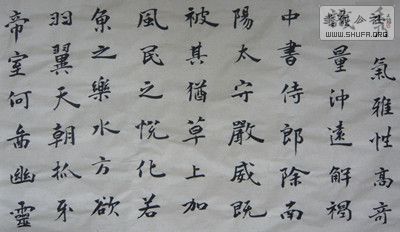 氣雅性高奇
量沖遠解褐
中書侍郎除南
陽太守嚴威既
被其猶草上加
風民之悅化若
魚之樂水方欲
羽翼天朝抓牙
帝室何啚幽靈
WWW.SHUFA.ORG